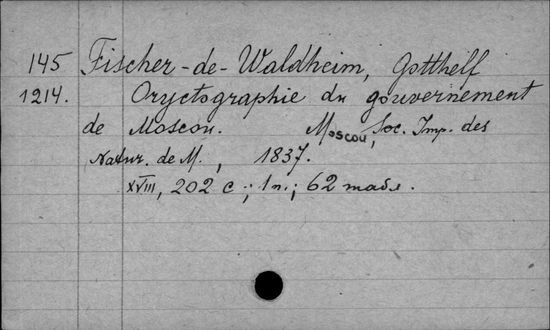 145 Fischer-de-Waldheim, Gotthelf
1214. Oryctographie du gouvernement
de Moscou. Moscou, Soc. Imp. des
Natur. de M., 1837.
XVIII, 202 с.; 1 п.; 62 табл.